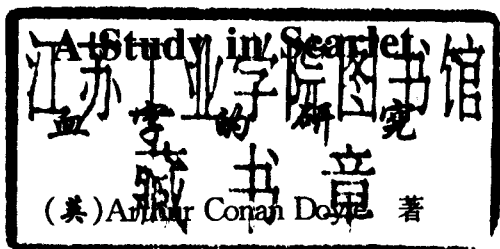 A Study in Scarlet
江苏工业学院图书馆
血字的研究
藏书章
(英)Arthur Conan Doyle 著